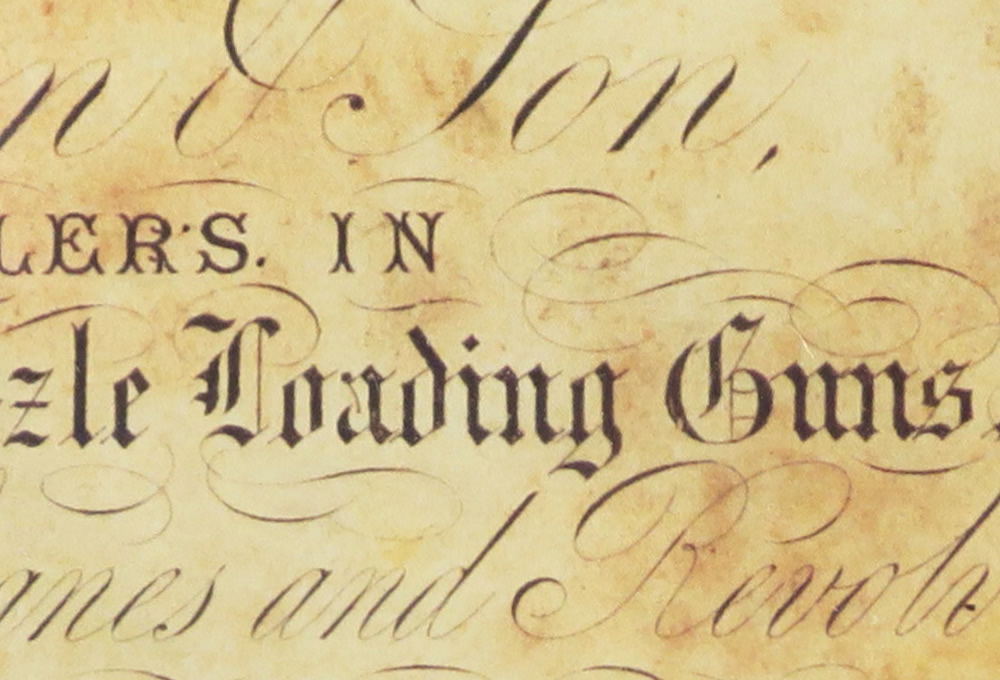 n & Son,
LERS. IN
zle Loading Guns.
anes and Revolv